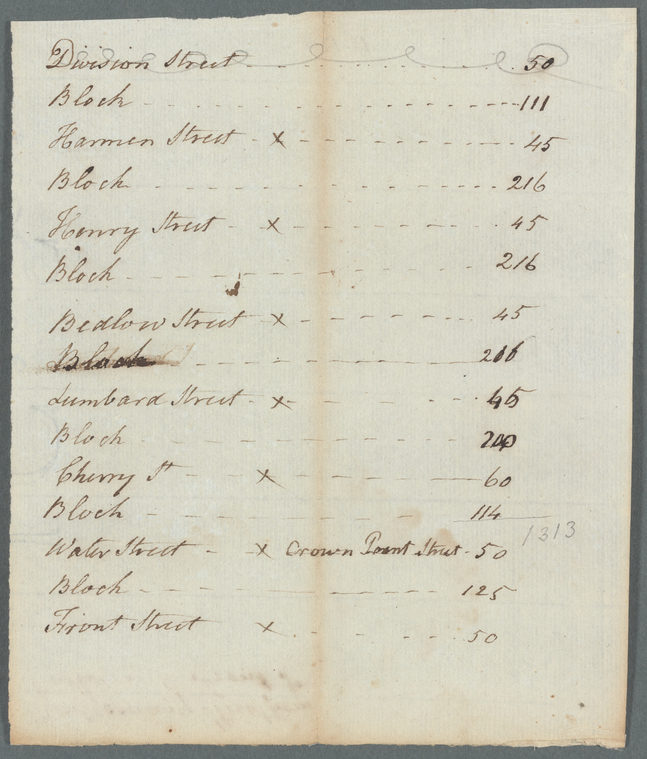 Division Street - - - - - - - - 50
Block - - - - - - - - 111
Harmen Street - x - - - - - - - 45
Block - - - - - - - - 216
Henry Street - x - - - - - - 45
Block - - - - - - - - 216
Bedlow Street - x - - - - - 45
Block - - - - - - - 216
Lumbard Street - x - - - - - 45
Block - - - - - - - 200
Cherry St - x - - - - - 60
Block - - - - - - - 114
1313
Water Street - x Crown Point Street - 50
Block - - - - - - - 125
Front Street x - - - - 50